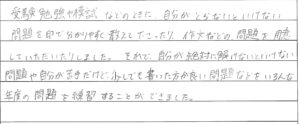 受験勉強や模試などのときに、自分がとらないといけない
問題を印で分かりやすく教えて下さったり、作文などの問題を用意
していただいたりしました。それで、自分が絶対に解けないといけない
問題や自分が苦手だけど、少しでも書いた方が良い問題などをいろんな
年度の問題を練習することができました。